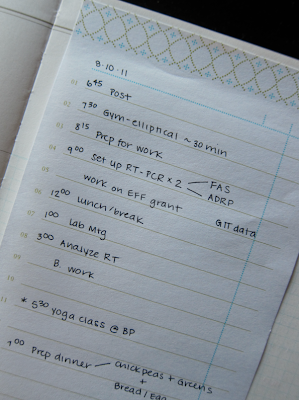 8·10·11
01 6⁴⁵ Post
02 7³⁰ Gym-elliptical ~ 30 min
03 8¹⁵ Prep for work
04 9⁰⁰ Set up RT-PCR x 2 FAS
ADRP
05 work on EFF grant GIT data
06 12⁰⁰ lunch/break
07 1⁰⁰ Lab Mtg
08 3⁰⁰ Analyze RT
09 B. work
10
11 * 5³⁰ yoga class @ BP
7⁰⁰ Prep dinner — chickpeas + Greens
+
Bread/Egg